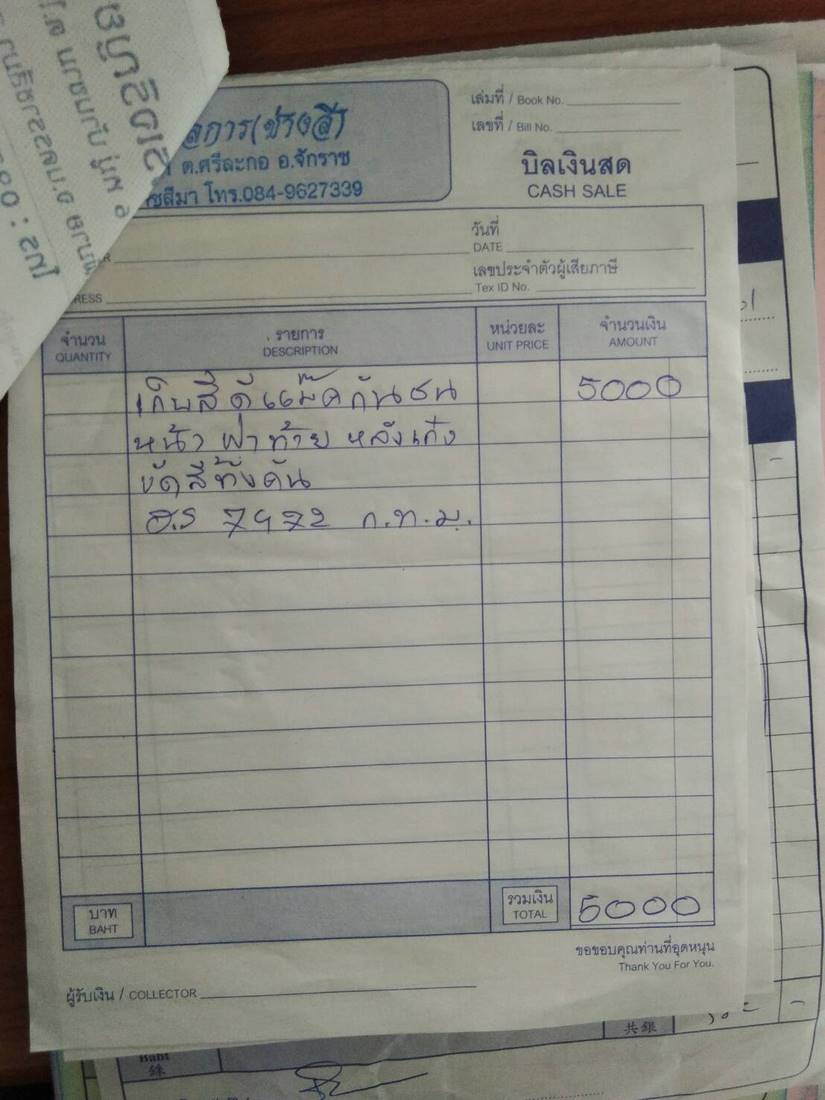 ลการ(ช่างสี)
ต.ศรีละกอ อ.จักราช
ชสีมา โทร.084-9627339
เล่มที่ / Book No.
เลขที่ / Bill No.
บิลเงินสด
CASH SALE
วันที่
DATE
เลขประจำตัวผู้เสียภาษี
Tex ID No.
RESS
จำนวน
QUANTITY
รายการ
DESCRIPTION
หน่วยละ
UNIT PRICE
จำนวนเงิน
AMOUNT
เก็บสี ดีแม็ค กันชน 5000
หน้า ฝาท้าย หลังเก๋ง
ขัดสีทั้งคัน
ฮ.ร 7472 ก.ท.ม.
บาท
BAHT
รวมเงิน
TOTAL
5000
ขอขอบคุณท่านที่อุดหนุน
Thank You For You.
ผู้รับเงิน / COLLECTOR
โทร : 08
Baht
銖
共銀